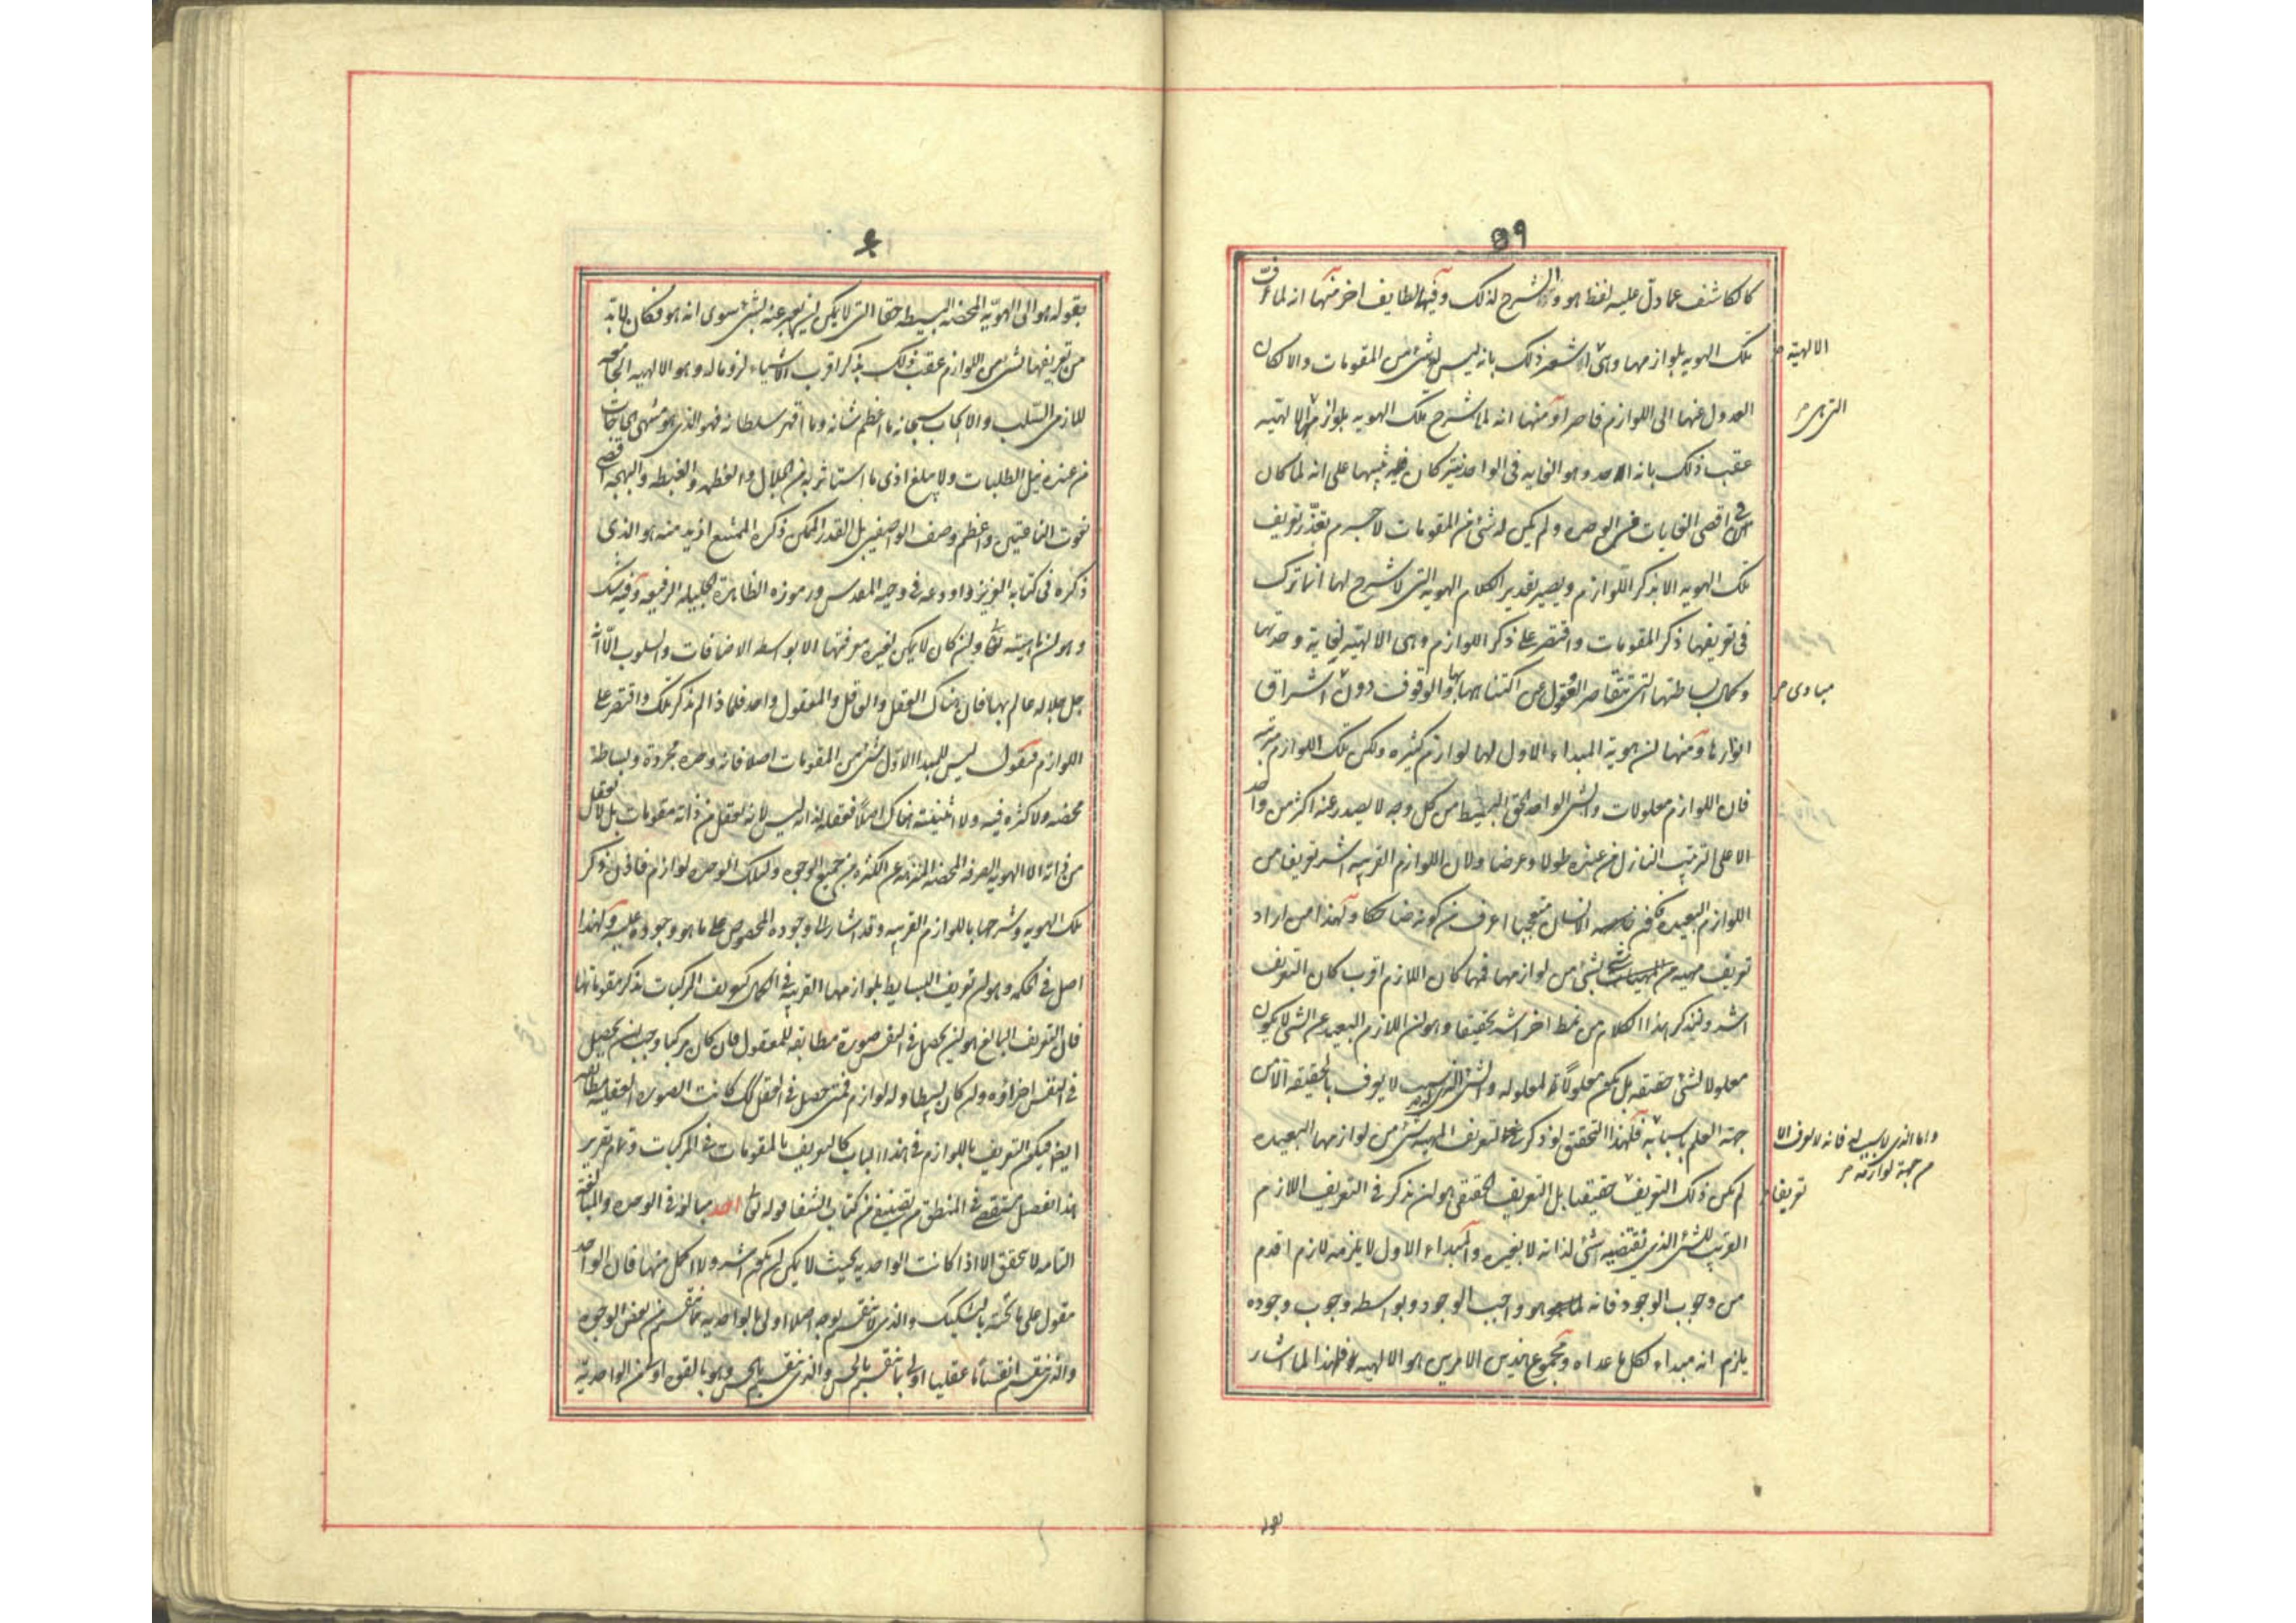 ٥٩
كالكاشف عما دل عليه لفظ هو وكالشرح لذلك وفيها لطايف اخر منها انه لما عرف
تلك الهويه بلوازمها وهى الالهية اشعر ذلك بانه ليس له شئ من المقومات والا لكان
العدول عنها الى اللوازم قاصرا ومنها انه لما شرح تلك الهويه بلوازم التى هى الالهيه
عقب ذلك بانه الاحد وهو الغايه فى الواحدية كان فيه تنبيها على انه لما كان
فى اقصى الغايات فى الوحده ولم يكن له شئ من المقومات لا جرم تعذر تعريف
تلك الهويه الا بذكر اللوازم ويصير تقدير الكلام الهويه التى لا شرح لها انما ترك
فى تعريفها ذكر المقومات واقتصر على ذكر اللوازم وهى الالهيه لغاية وحدتها
وكمال بساطتها التى تتقاصر العقول عن اكتناهها والوقوف دون مبادى اشراق
انوارها ومنها ان هوية المبداء الاول لها لوازم كثيره ولكن تلك اللوازم مترتبه
فان اللوازم معلولات والشئ الواحد الحق البسيط من كل وجه لا يصدر عنه اكثر من واحد
الا على الترتيب النازل من عنده طولا وعرضا ولان اللوازم القريبه اشد تعريفا من
اللوازم البعيده فكون الانسان متعجبا اعرف من كونه ضاحكا ولهذا من اراد
تعريف مهيه من المهيات بشئ من لوازمها فمهما كان اللازم اقرب كان التعريف
اشد ولنذكر هذا الكلام من نمط اخر اشد تحقيقا وهو ان اللازم البعيد عن الشئ لا يكون
معلولا للشئ حقيقه بل يكون معلولا لمعلوله والشئ الذى له سبب لا يعرف بالحقيقه الا من
جهة العلم باسبابه واما الذى لا سبب له فانه لا يعرف الا من جهة لوازمه فلهذا التحقيق لو ذكر فى تعريف المهيه شئ من لوازمها البعيده
لم يكن ذلك التعريف تعريفا حقيقيا بل التعريف الحقيقى هو ان يذكر فى التعريف اللازم
القريب للشئ الذى يقتضيه الشئ لذاته لا بغيره والمبداء الاول لا يلزمه لازم اقدم
من وجوب الوجود فانه هو واجب الوجود وبواسطه وجوب وجوده
يلزم انه مبداء لكل ما عداه ومجموع هذين الامرين هو الالهيه فلهذا لما اشار
بقوله
٦٠
بقوله هو الى الهويه المحضه البسيطه حقا التى لا يمكن ان يعبر عنها بشئ سوى انه هو وكان لا بد
من تعريفها بشئ من اللوازم عقب ذلك بذكر اقرب الاشياء لزوما له وهو الالهيه الجامعه
للازمى السلب والايجاب سبحانه ما اعظم شانه وما اقهر سلطانه فهو الذى هو منتهى الحاجات
من عنده نيل الطلبات ولا يبلغ ادنى ما استاثر به من الجلال والعظمه والغبطه والبهجه اقصى
نعوت الناعتين واعظم وصف الواصفين بل القدر الممكن ذكره الممتنع ازيد منه هو الذى
ذكره فى كتابه العزيز واودعه فى وحيه المقدس ورموزه الظاهرة الجليله الرفيعه وفيه شك
وهو ان ماهيته تعالى وان كان لا يمكن لغيره معرفتها الا بواسطه الاضافات والسلوب الا انه
جل جلاله عالم بها فان هناك العقل والعاقل والمعقول واحد فلماذا لم يذكر تلك واقتصر على
اللوازم فنقول ليس للمبدا الاول شئ من المقومات اصلا فانه وحده مجردة وبساطة
محضه ولا كثره فيه ولا اثنينيه هناك اصلا فعقله لذاته ليس لانه يعقل من ذاته مقومات بل لا يعقل
من ذاته الا الهويه الصرفه المحضه المنزهه عن الكثره من جميع الوجوه ولتلك الوحده لوازم فاذن ذكر
تلك الهويه وشرحها باللوازم القريبه وقد اشار الى وجوده المخصوص على ما هو وجوده عليه ولهذا
اصل فى الحكمه وهو ان تعريف البسايط بلوازمها القريبه فى الكمال كتعريف المركبات بذكر مقوماتها
فان التعريف البالغ هو ان يحصل فى النفس صورة مطابقه للمعقول فان كان مركبا وجب ان يحصل
فى النفس اجزاؤه وان كان بسيطا وله لوازم فمتى حصل فى العقل ذلك كانت الصوره العقليه مطابقه
ايضا فيكون التعريف باللوازم فى هذا الباب كالتعريف بالمقومات فى المركبات وتمام تقرير
هذا الفصل مستقصى فى المنطق من تصنيفى من كتاب الشفا قوله تعالى احد مبالغه فى الوحده والمبالغه
التامه لا تتحقق الا اذا كانت الواحديه بحيث لا يمكن ان يكون اشد ولا اكمل منها فان الواحد
مقول على ما تحته بالتشكيك والذى لا ينقسم بوجه اصلا اولى بالواحديه مما ينقسم من بعض الوجوه
والذى ينقسم انقساما عقليا اولى مما ينقسم بالحس والذى ينقسم بالحس وهو بالقوه اولى من الواحديه